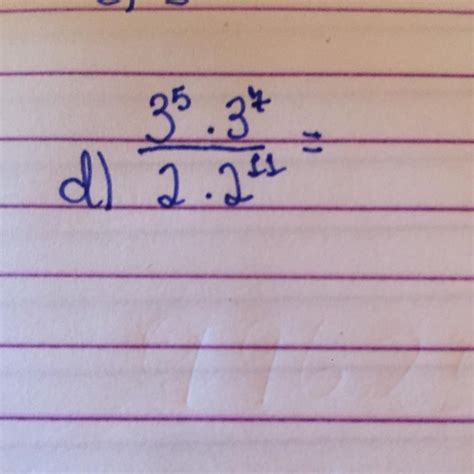 d) 3⁵ . 3⁷ / 2 . 2¹¹ =